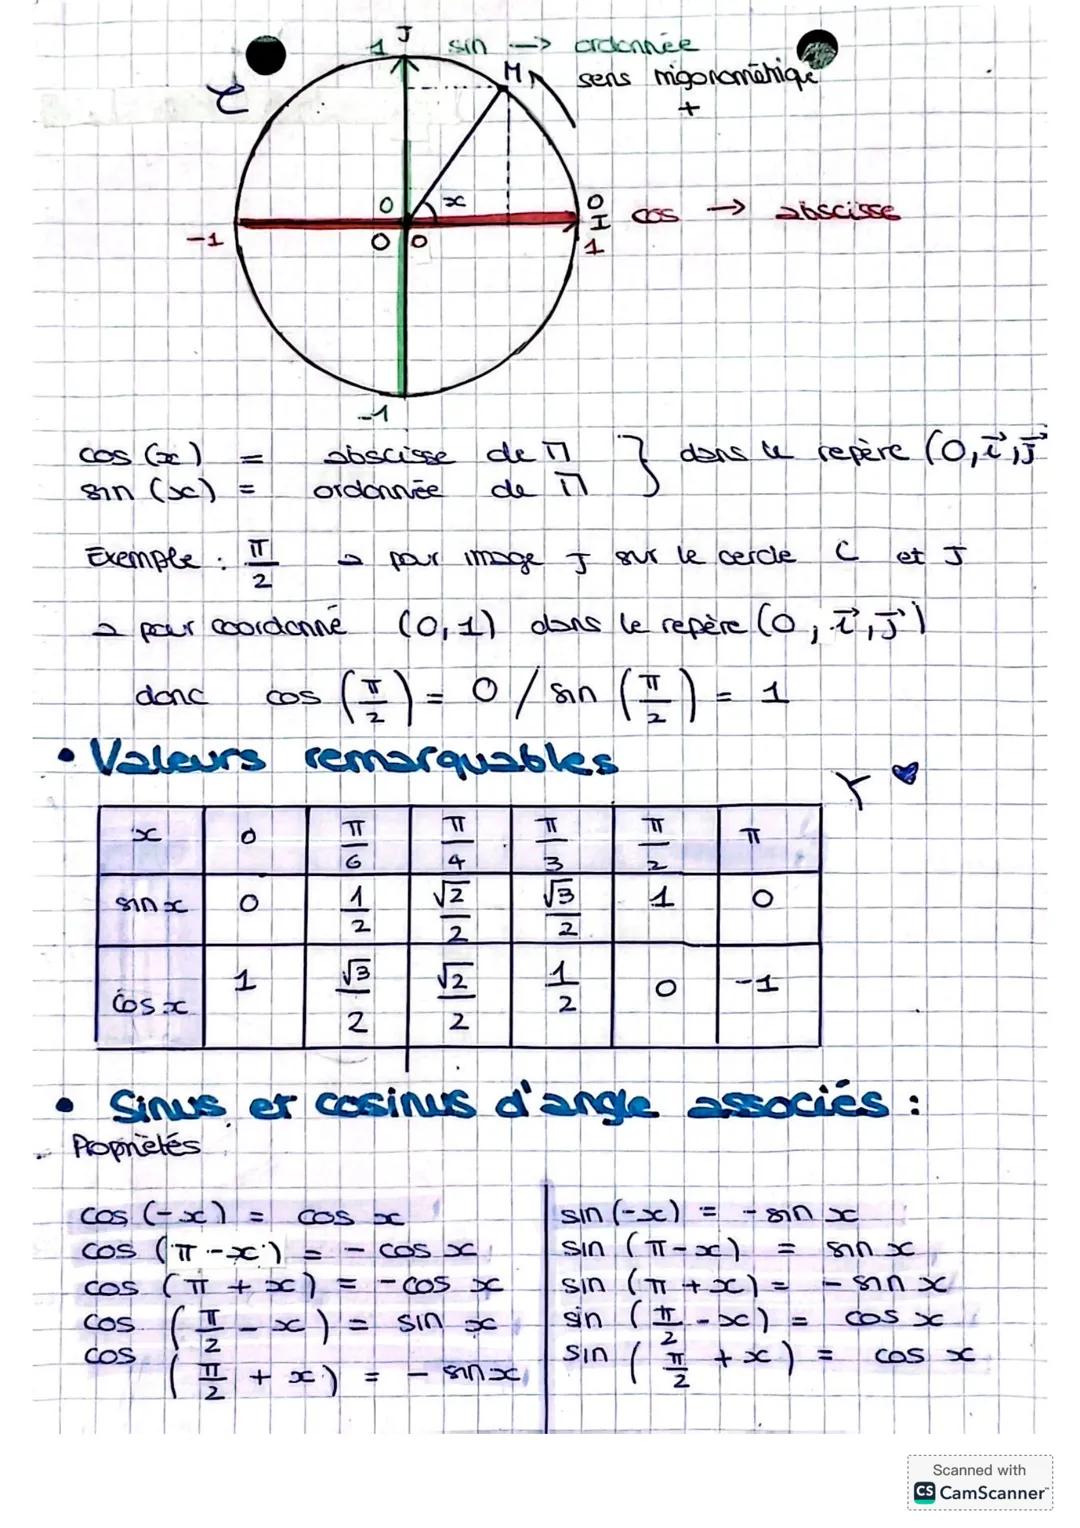 1 J sin → ordonnée
M sens trigonométrique
C +
0 x 0 I cos → abscisse
-1 0 0 1
-1
cos (x) = abscisse de M } dans le repère (O, i, j
sin (x) = ordonnée de M
Exemple : π/2 → pour image J sur le cercle C et J
→ pour coordonné (0,1) dans le repère (O ; i, j)
donc cos (π/2) = 0 / sin (π/2) = 1
• Valeurs remarquables
x 0 π/6 π/4 π/3 π/2 π
sin x 0 1/2 √2/2 √3/2 1 0
cos x 1 √3/2 √2/2 1/2 0 -1
• Sinus et cosinus d'angle associés :
Propriétés
cos (-x) = cos x sin (-x) = - sin x
cos (π - x) = - cos x sin (π - x) = sin x
cos (π + x) = - cos x sin (π + x) = - sin x
cos (π/2 - x) = sin x sin (π/2 - x) = cos x
cos (π/2 + x) = - sin x sin (π/2 + x) = cos x
Scanned with
CS CamScanner